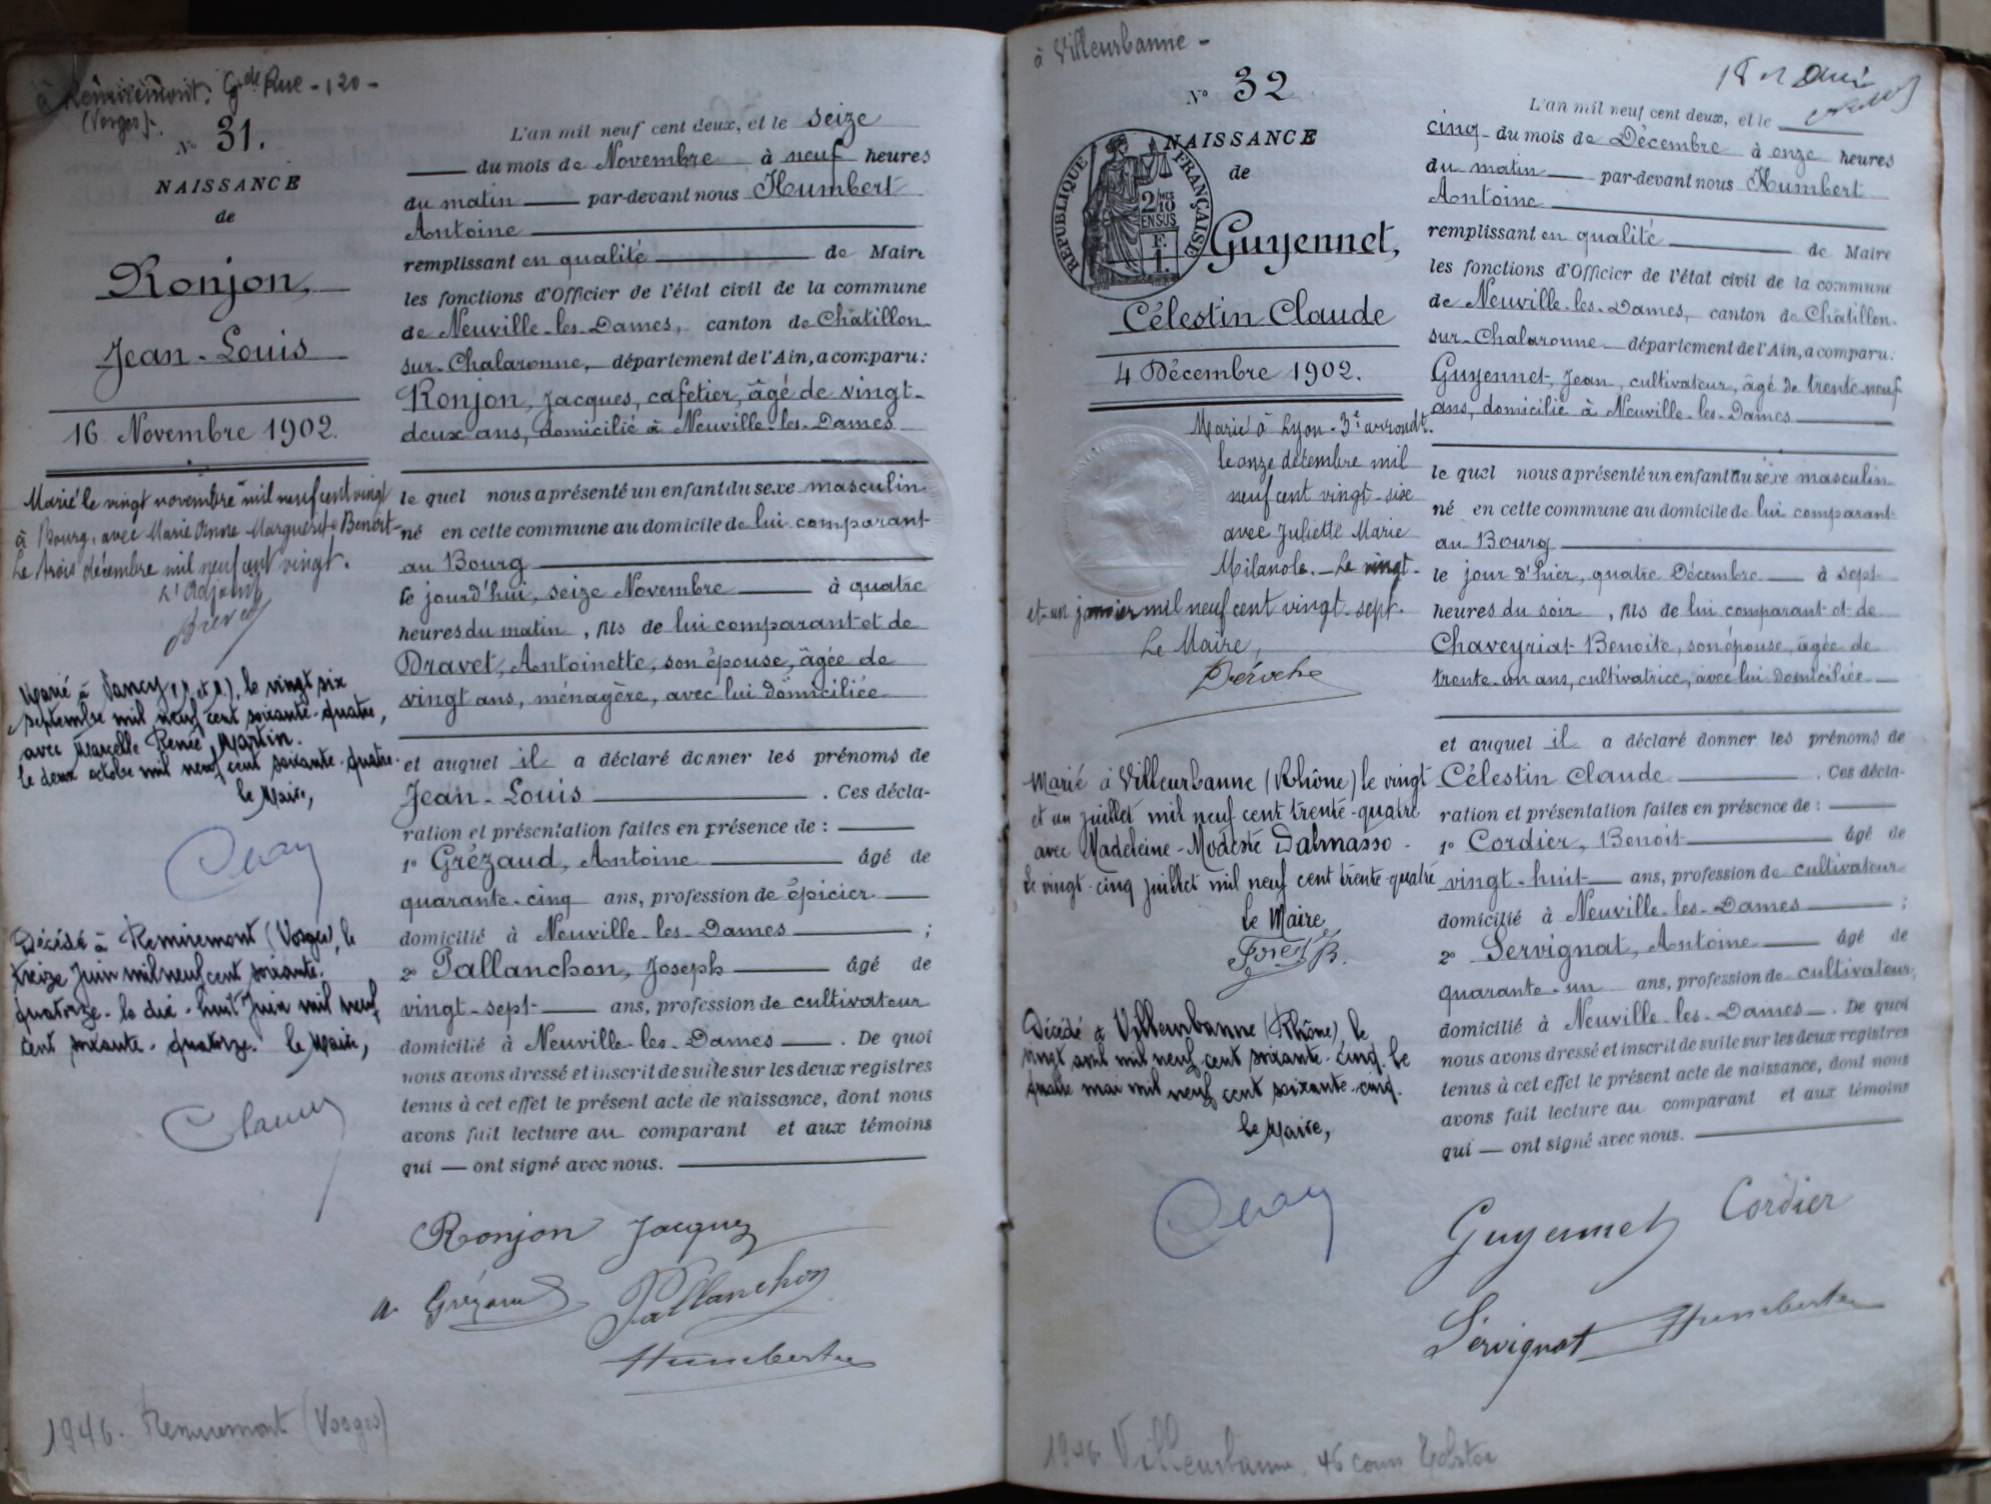 à Remiremont, Gde Rue - 120 -
(Vosges).
No 31.
NAISSANCE
de
Ronjon,
Jean-Louis
16 Novembre 1902.
Marié le vingt novembre mil neuf cent vingt
à Bourg, avec Marie Anne Marguerite Benoit-
Le trois décembre mil neuf cent vingt.
L'Adjoint
Marié à Nancy, le vingt six
septembre mil neuf cent soixante-quatre,
avec Marcelle Renée Martin.
le deux octobre mil neuf cent soixante-quatre.
le Maire,
Décédé à Remiremont (Vosges), le
treize Juin mil neuf cent soixante.
quatorze. le dix-huit Juin mil neuf
cent soixante-quatorze. le Maire,
L'an mil neuf cent deux, et le seize
du mois de Novembre à neuf heures
du matin par-devant nous Humbert
Antoine
remplissant en qualité de Maire
les fonctions d'Officier de l'état civil de la commune
de Neuville-les-Dames, canton de Châtillon-
sur-Chalaronne, département de l'Ain, a comparu:
Ronjon, Jacques, cafetier, âgé de vingt-
deux ans, domicilié à Neuville-les-Dames
le quel nous a présenté un enfant du sexe masculin
né en cette commune au domicile de lui comparant
au Bourg
le jourd'hui, seize Novembre à quatre
heures du matin, fils de lui comparant et de
Dravet, Antoinette, son épouse, âgée de
vingt ans, ménagère, avec lui domiciliée
et auquel il a déclaré donner les prénoms de
Jean-Louis . Ces décla-
ration et présentation faites en présence de :
1º Grézaud, Antoine âgé de
quarante-cinq ans, profession de épicier
domicilié à Neuville-les-Dames ;
2º Pallanchon, Joseph âgé de
vingt-sept ans, profession de cultivateur
domicilié à Neuville-les-Dames . De quoi
nous avons dressé et inscrit de suite sur les deux registres
tenus à cet effet le présent acte de naissance, dont nous
avons fait lecture au comparant et aux témoins
qui — ont signé avec nous.
Ronjon Jacques
A Grézaud Pallanchon
Humbert
1946. Remiremont (Vosges)
à Villeurbanne -
No 32
NAISSANCE
de
RÉPUBLIQUE FRANÇAISE
2/10
EN SUS
F.
1.
Guyennet,
Célestin Claude
4 Décembre 1902.
Marié à Lyon - 3e arrondt.
le onze décembre mil
neuf cent vingt-six
avec Juliette Marie
Milanole. - Le vingt-
et-un janvier mil neuf cent vingt-sept.
Le Maire,
Déroche
Marié à Villeurbanne (Rhône) le vingt
et un juillet mil neuf cent trente-quatre
avec Madeleine-Modeste Dalmasso.
le vingt-cinq juillet mil neuf cent trente-quatre
le Maire,
Décédé à Villeurbanne (Rhône), le
vingt avril mil neuf cent soixante-cinq. le
quatre mai mil neuf cent soixante-cinq.
le Maire,
L'an mil neuf cent deux, et le
cinq du mois de Décembre à onze heures
du matin par-devant nous Humbert
Antoine
remplissant en qualité de Maire
les fonctions d'Officier de l'état civil de la commune
de Neuville-les-Dames, canton de Châtillon-
sur-Chalaronne département de l'Ain, a comparu:
Guyennet, Jean, cultivateur, âgé de trente-neuf
ans, domicilié à Neuville-les-Dames
le quel nous a présenté un enfant du sexe masculin
né en cette commune au domicile de lui comparant
au Bourg
le jour d'hier, quatre Décembre à sept
heures du soir , fils de lui comparant et de
Chaveyriat Benoite, son épouse, âgée de
trente-un ans, cultivatrice, avec lui domiciliée
et auquel il a déclaré donner les prénoms de
Célestin Claude . Ces décla-
ration et présentation faites en présence de :
1º Cordier, Benoit âgé de
vingt-huit ans, profession de cultivateur
domicilié à Neuville-les-Dames ;
2º Servignat, Antoine âgé de
quarante-un ans, profession de cultivateur,
domicilié à Neuville-les-Dames . De quoi
nous avons dressé et inscrit de suite sur les deux registres
tenus à cet effet le présent acte de naissance, dont nous
avons fait lecture au comparant et aux témoins
qui — ont signé avec nous.
Guyennet Cordier
Servignat Humbert
1946 Villeurbanne. 46 cours Tolstoi